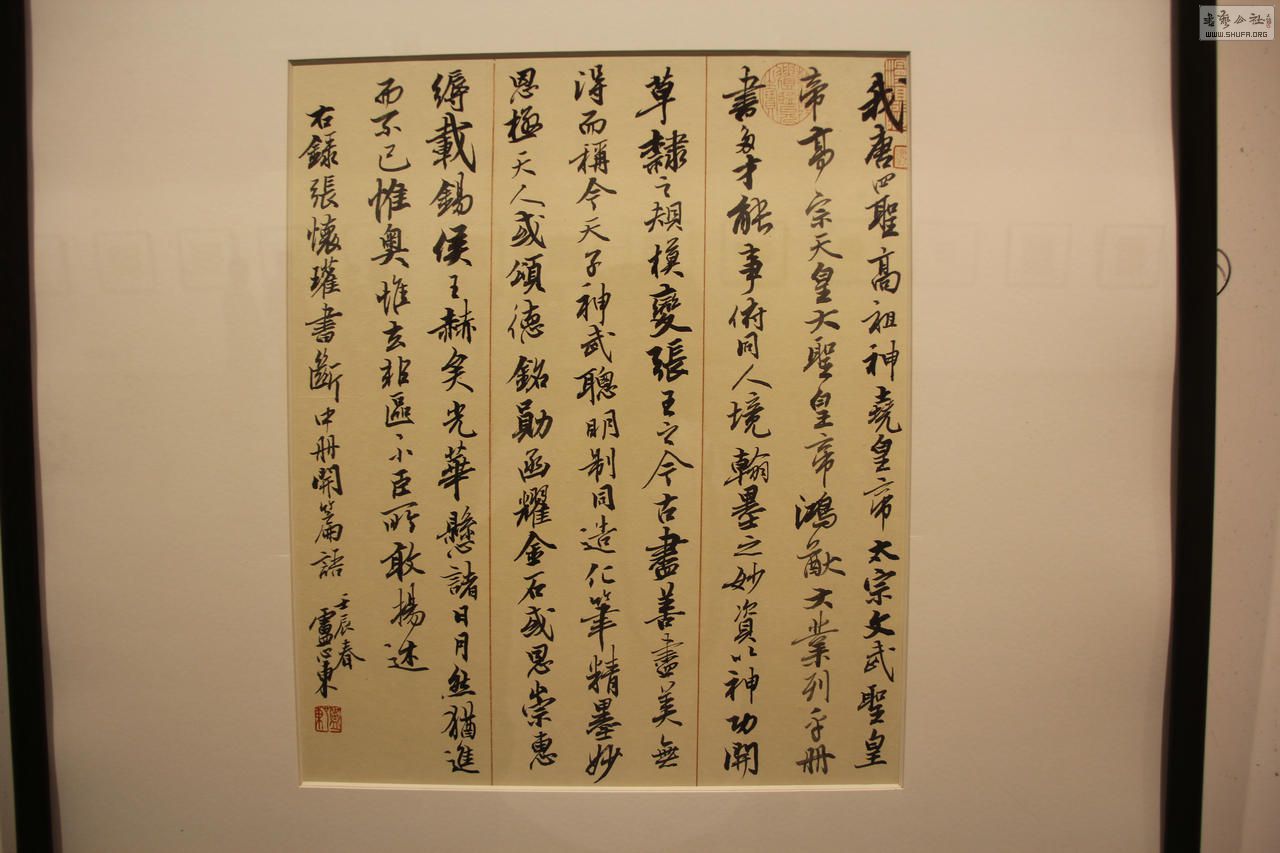 我唐四聖高祖神堯皇帝太宗文武聖皇
帝高宗天皇大聖皇帝鴻猷大業列乎冊
書多才能事俯同人境翰墨之妙資以神功開
草隸之規模變張王之今古盡善盡美無
得而稱今天子神武聰明制同造化筆精墨妙
思極天人或頌德銘勛函耀金石或恩崇惠
縟載錫侯王赫矣光華懸諸日月然猶進
而不已惟奧惟玄非區區小臣所敢揚述
右錄張懷瓘書斷中冊開篇語 壬辰春
盧心東
書藝公社
WWW.SHUFA.ORG